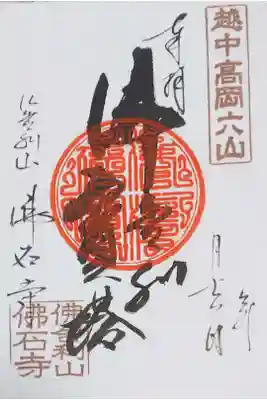 越中高岡六山
奉拝
佛舎利寶塔
年
月 日
仏舎利山
佛石寺
佛舎利山
佛石寺